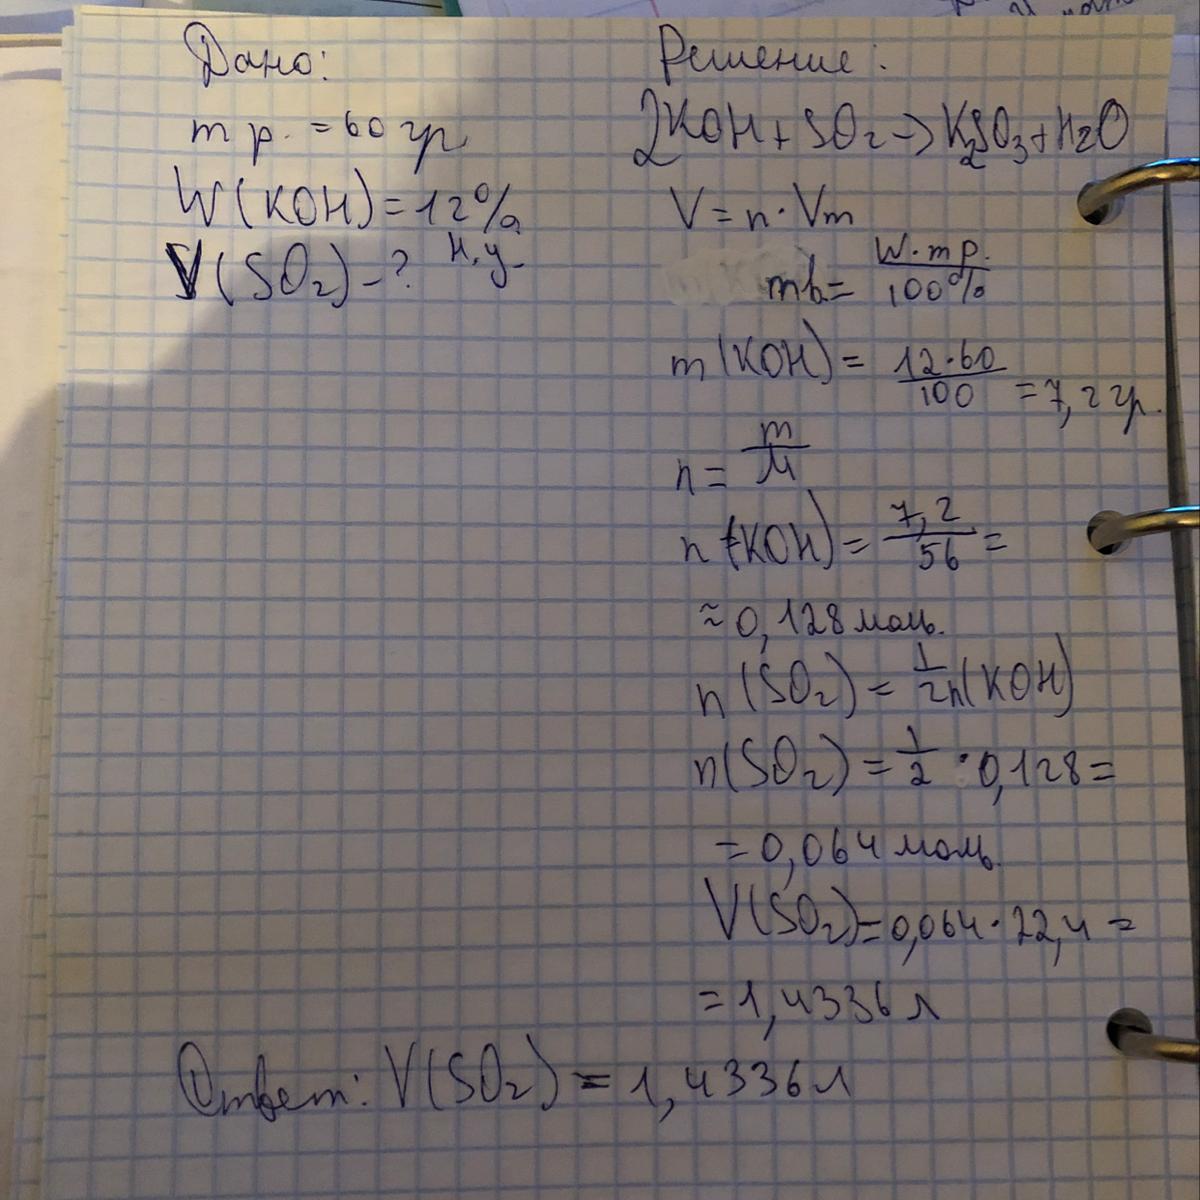 Дано:
m р. = 60 гр
W(KOH) = 12%
V(SO2) - ? н.у.
Решение:
2KOH + SO2 → K2SO3 + H2O
V = n · Vm
mв = W · m р. / 100%
m(KOH) = 12 · 60 / 100 = 7,2 гр.
n = m / M
n(KOH) = 7,2 / 56 =
≈ 0,128 моль.
n(SO2) = 1/2 n(KOH)
n(SO2) = 1/2 · 0,128 =
= 0,064 моль.
V(SO2) = 0,064 · 22,4 =
= 1,4336 л
Ответ: V(SO2) = 1,4336 л